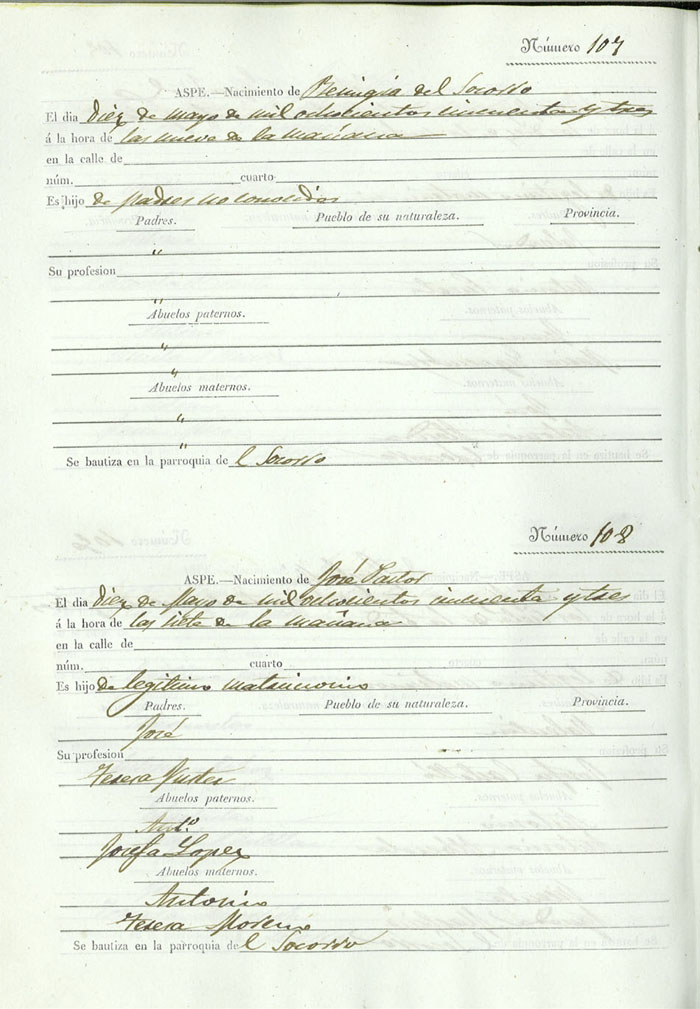 Número 107
ASPE.—Nacimiento de Remigia del Socorro
El dia diez de mayo de mil ochocientos cincuenta y tres
á la hora de las nueve de la mañana
en la calle de
núm. cuarto
Es hijo de padres no conocidos
Padres. Pueblo de su naturaleza. Provincia.
"
Su profesion
"
Abuelos paternos.
"
"
Abuelos maternos.
"
"
Se bautiza en la parroquia de l Socorro
Número 108
ASPE.—Nacimiento de José Pastor
El dia diez de Mayo de mil ochocientos cincuenta y tres
á la hora de las siete de la mañana
en la calle de
núm. cuarto
Es hijo de legitimo matrimonio
Padres. Pueblo de su naturaleza. Provincia.
José
Su profesion
Teresa
Abuelos paternos.
Ant.º
Josefa Lopez
Abuelos maternos.
Antonio
Teresa Moreno
Se bautiza en la parroquia de l Socorro